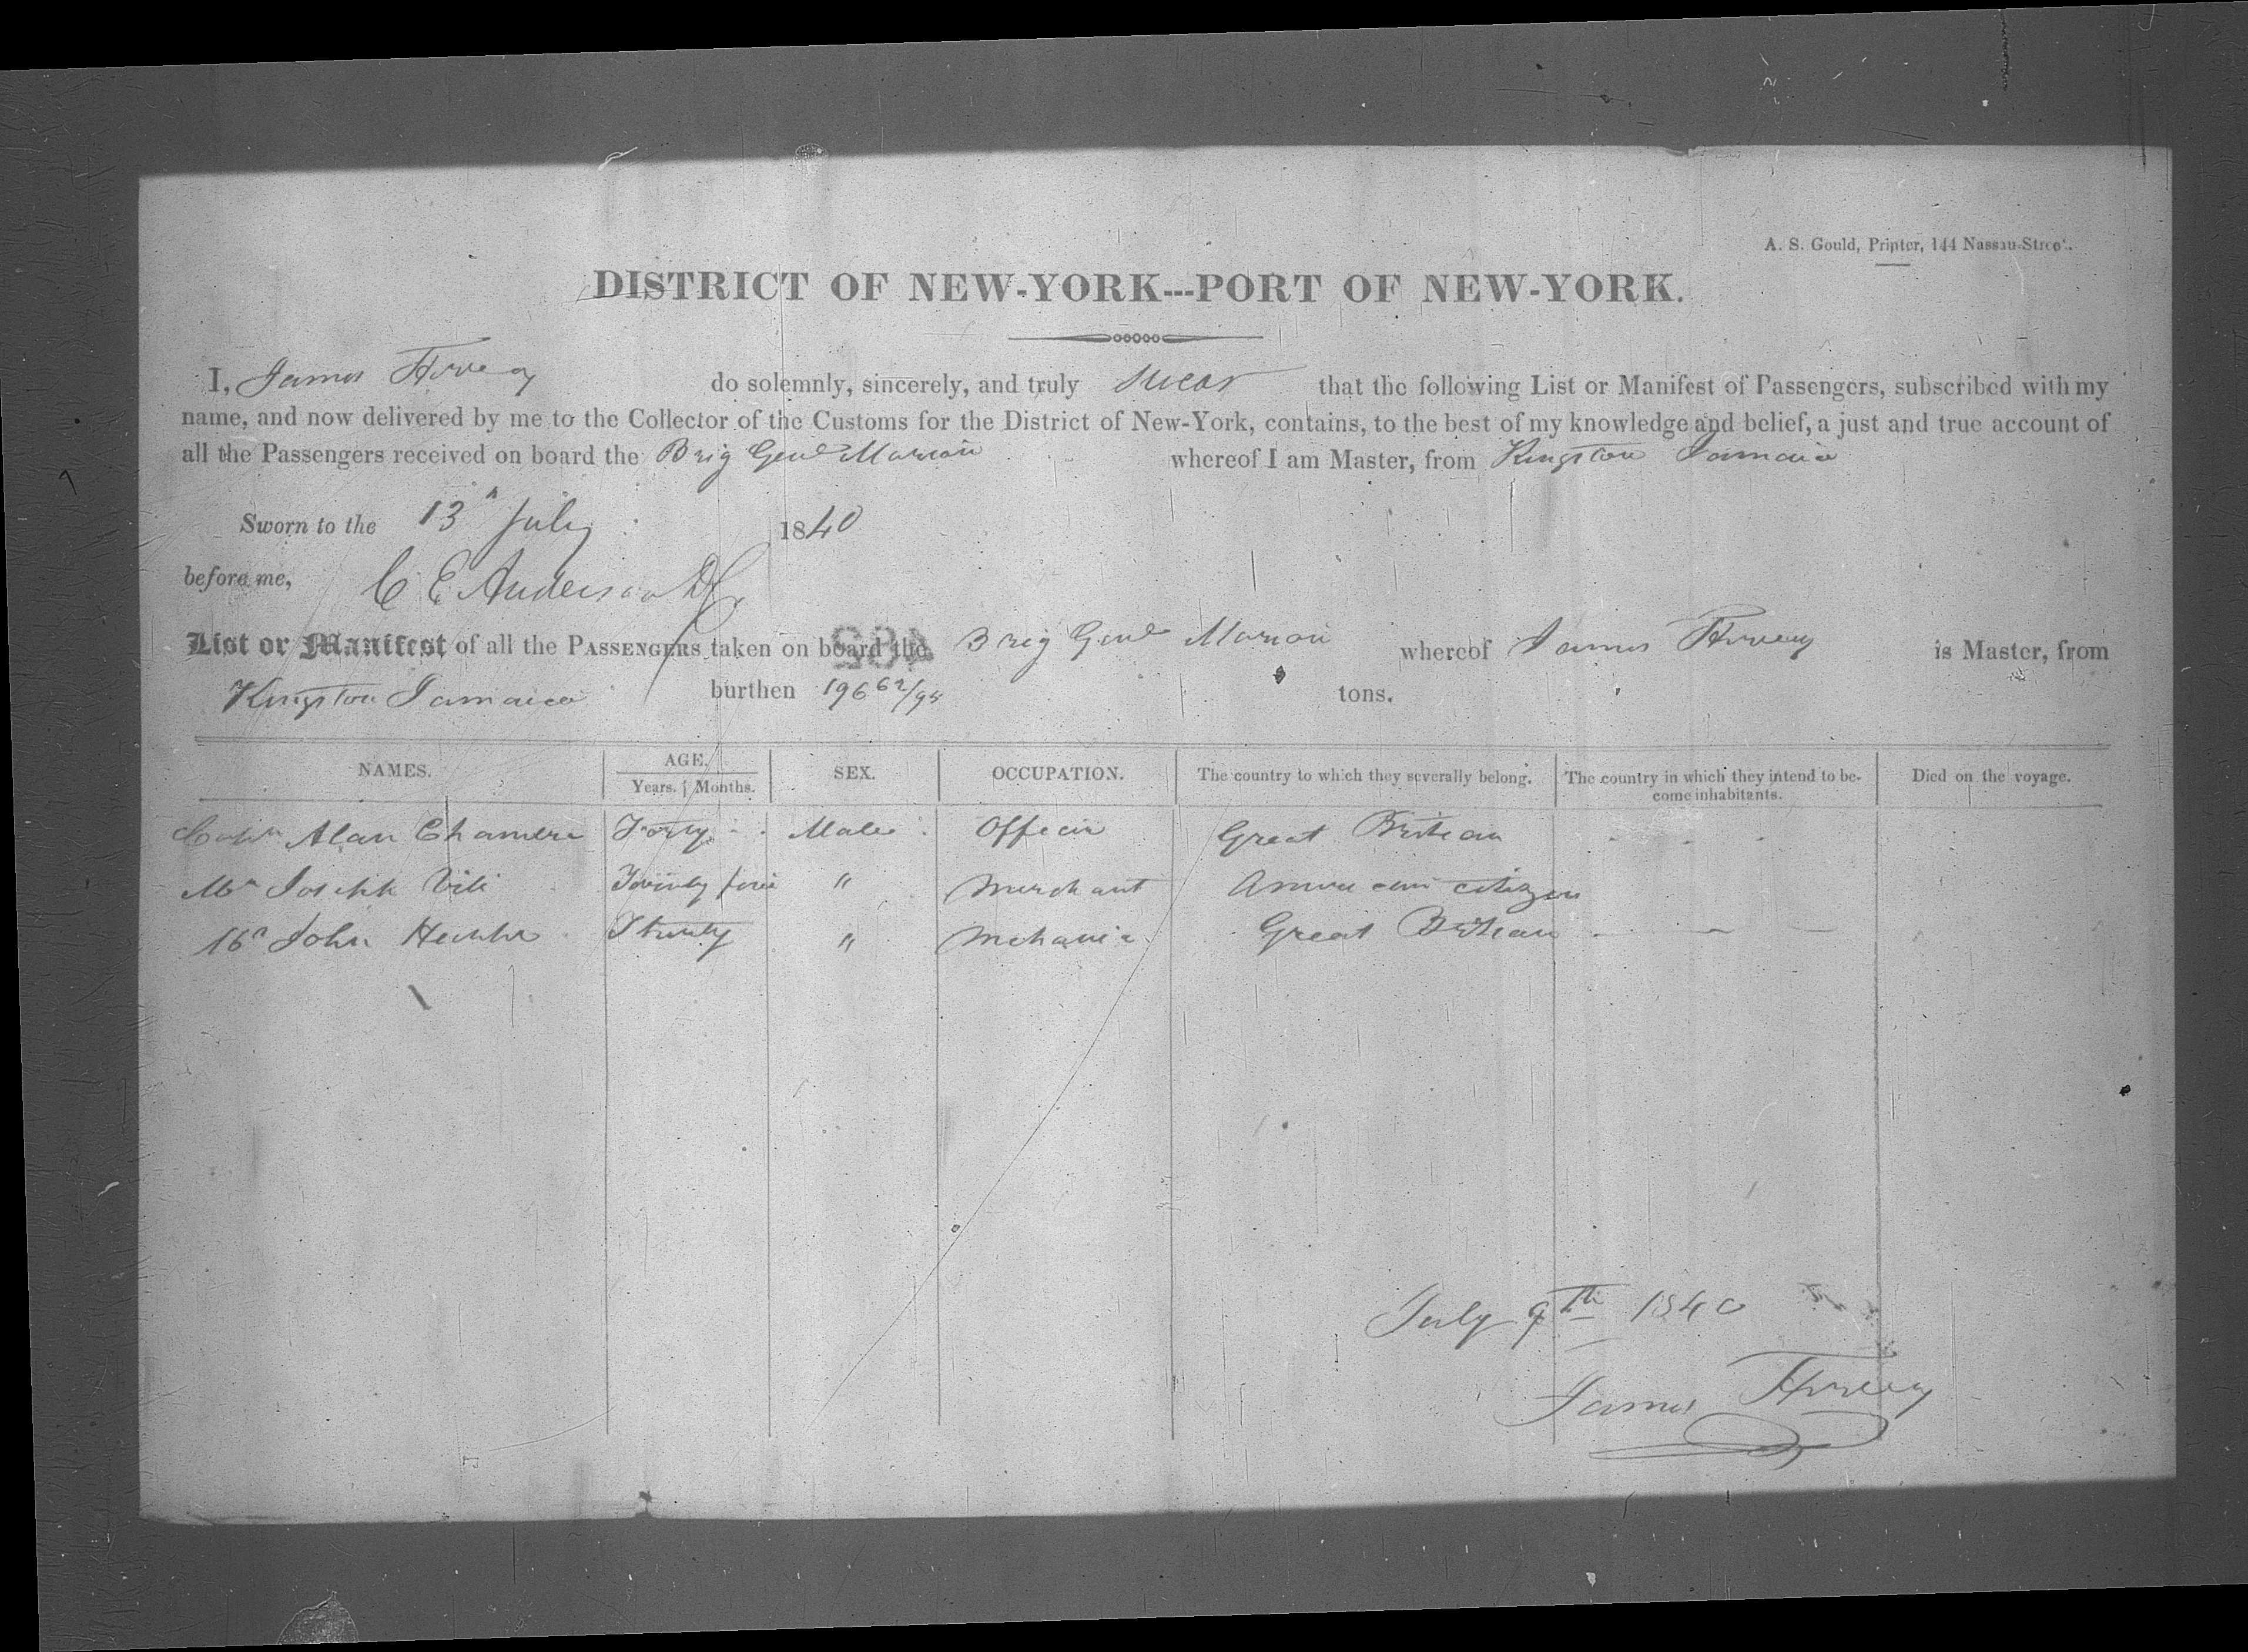 A. S. Gould, Printer, 144 Nassau-Street.
DISTRICT OF NEW-YORK---PORT OF NEW-YORK.
I, James do solemnly, sincerely, and truly swear that the following List or Manifest of Passengers, subscribed with my
name, and now delivered by me to the Collector of the Customs for the District of New-York, contains, to the best of my knowledge and belief, a just and true account of
all the Passengers received on board the Brig Genl Marion whereof I am Master, from Kingston Jamaica
Sworn to the 13h July 1840
before me, C E Anderson DC
List or Manifest of all the PASSENGERS taken on board the Brig Genl Marion whereof James is Master, from
Kingston Jamaica burthen 196 62/95 tons.
NAMES. AGE. SEX. OCCUPATION. The country to which they severally belong. The country in which they intend to be- Died on the voyage.
Years. Months. come inhabitants.
Capn Alan Forty Male Officer Great Britian
Mr Joseph Twenty " Merchant American citizen
Mr John " Mchanic Great Britian
July 9th 1840
James